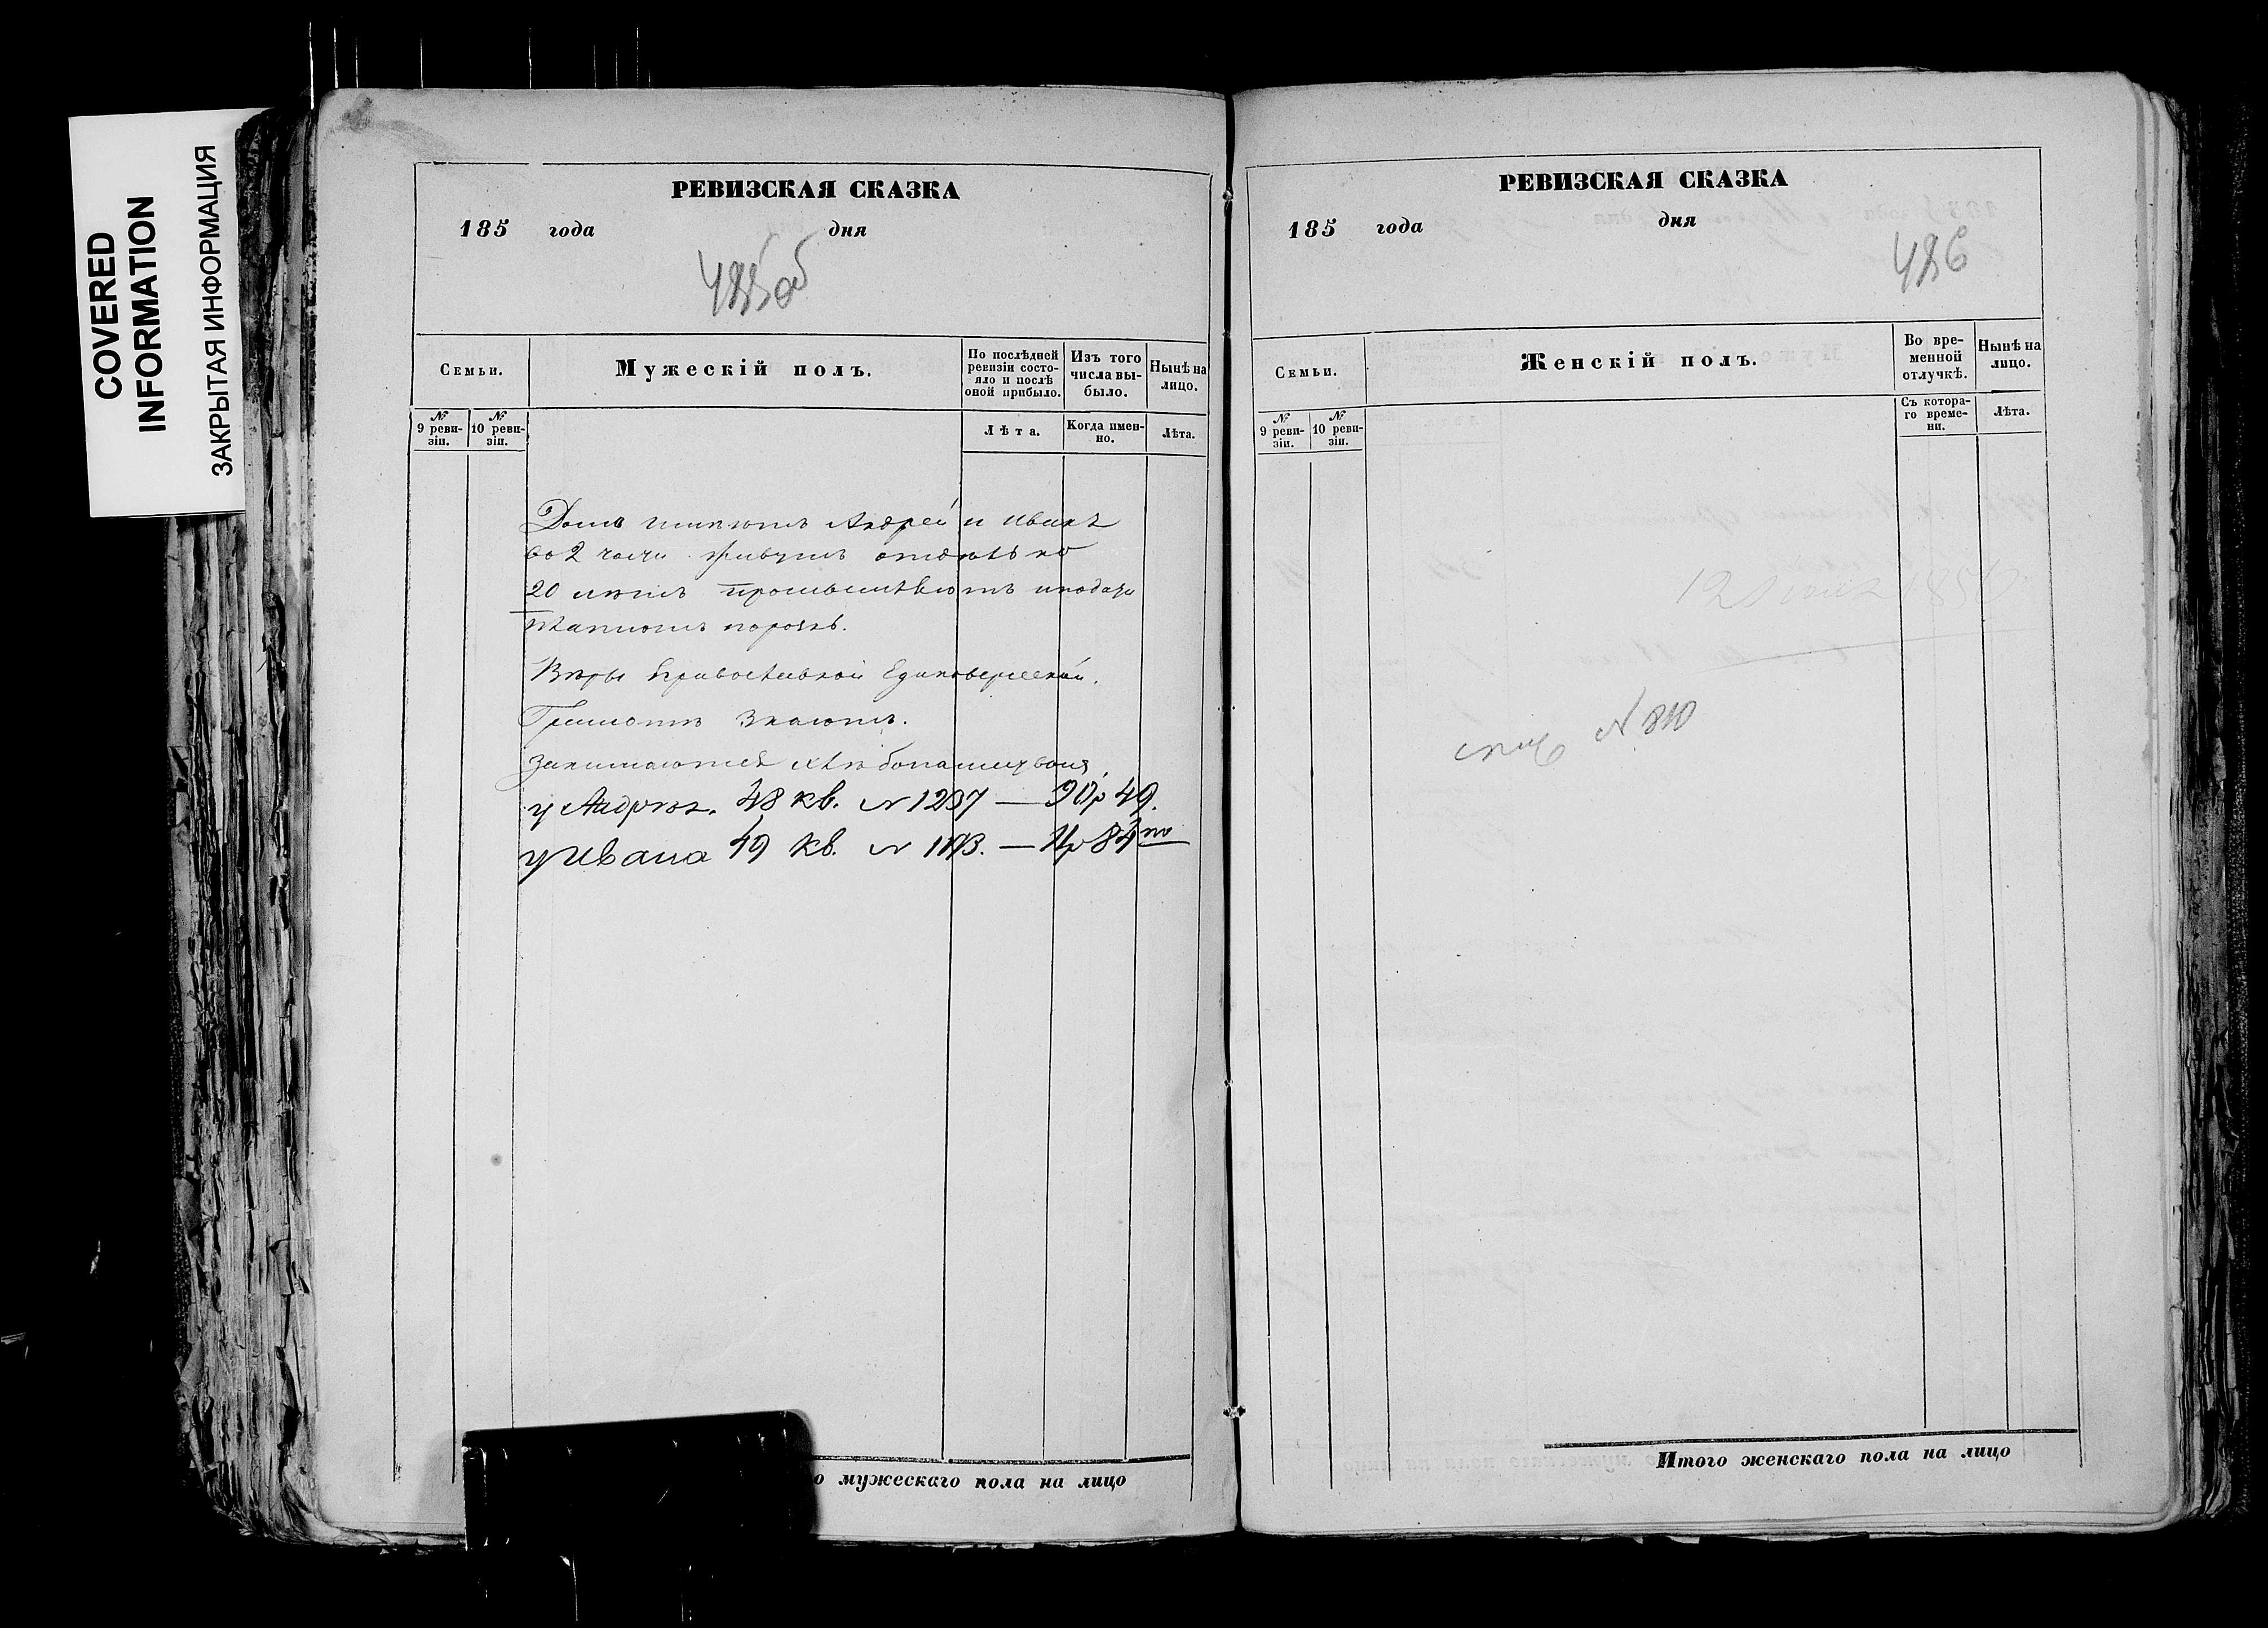 COVERED
INFORMATION
ЗАКРЫТАЯ ИНФОРМАЦИЯ
РЕВИЗСКАЯ СКАЗКА
185 года дня
485об
Семьи.
Мужескій полъ.
По послѣдней ревизіи состояло и послѣ оной прибыло.
Изъ того числа выбыло.
Нынѣ на лицо.
№ 9 ревизіи.
№ 10 ревизіи.
Лѣта.
Когда именно.
Лѣта.
Домъ имѣютъ Андрей и Иванъ
во 2 части живутъ отдѣльно
20 лѣтъ промышляютъ и подати
платютъ порознь.
Вѣры Православной Единоверческой.
Грамотѣ знаютъ.
Занимаются хлѣбопашеством
у Андрея. 48 кв. № 1237 — 90р 49.
у Ивана 49 кв. № 1193. —
о мужескаго пола на лицо
РЕВИЗСКАЯ СКАЗКА
185 года дня
486
Семьи.
Женскій полъ.
Во временной отлучкѣ.
Нынѣ на лицо.
№ 9 ревизіи.
№ 10 ревизіи.
Съ котораго времени.
Лѣта.
№ 810
Итого женскаго пола на лицо